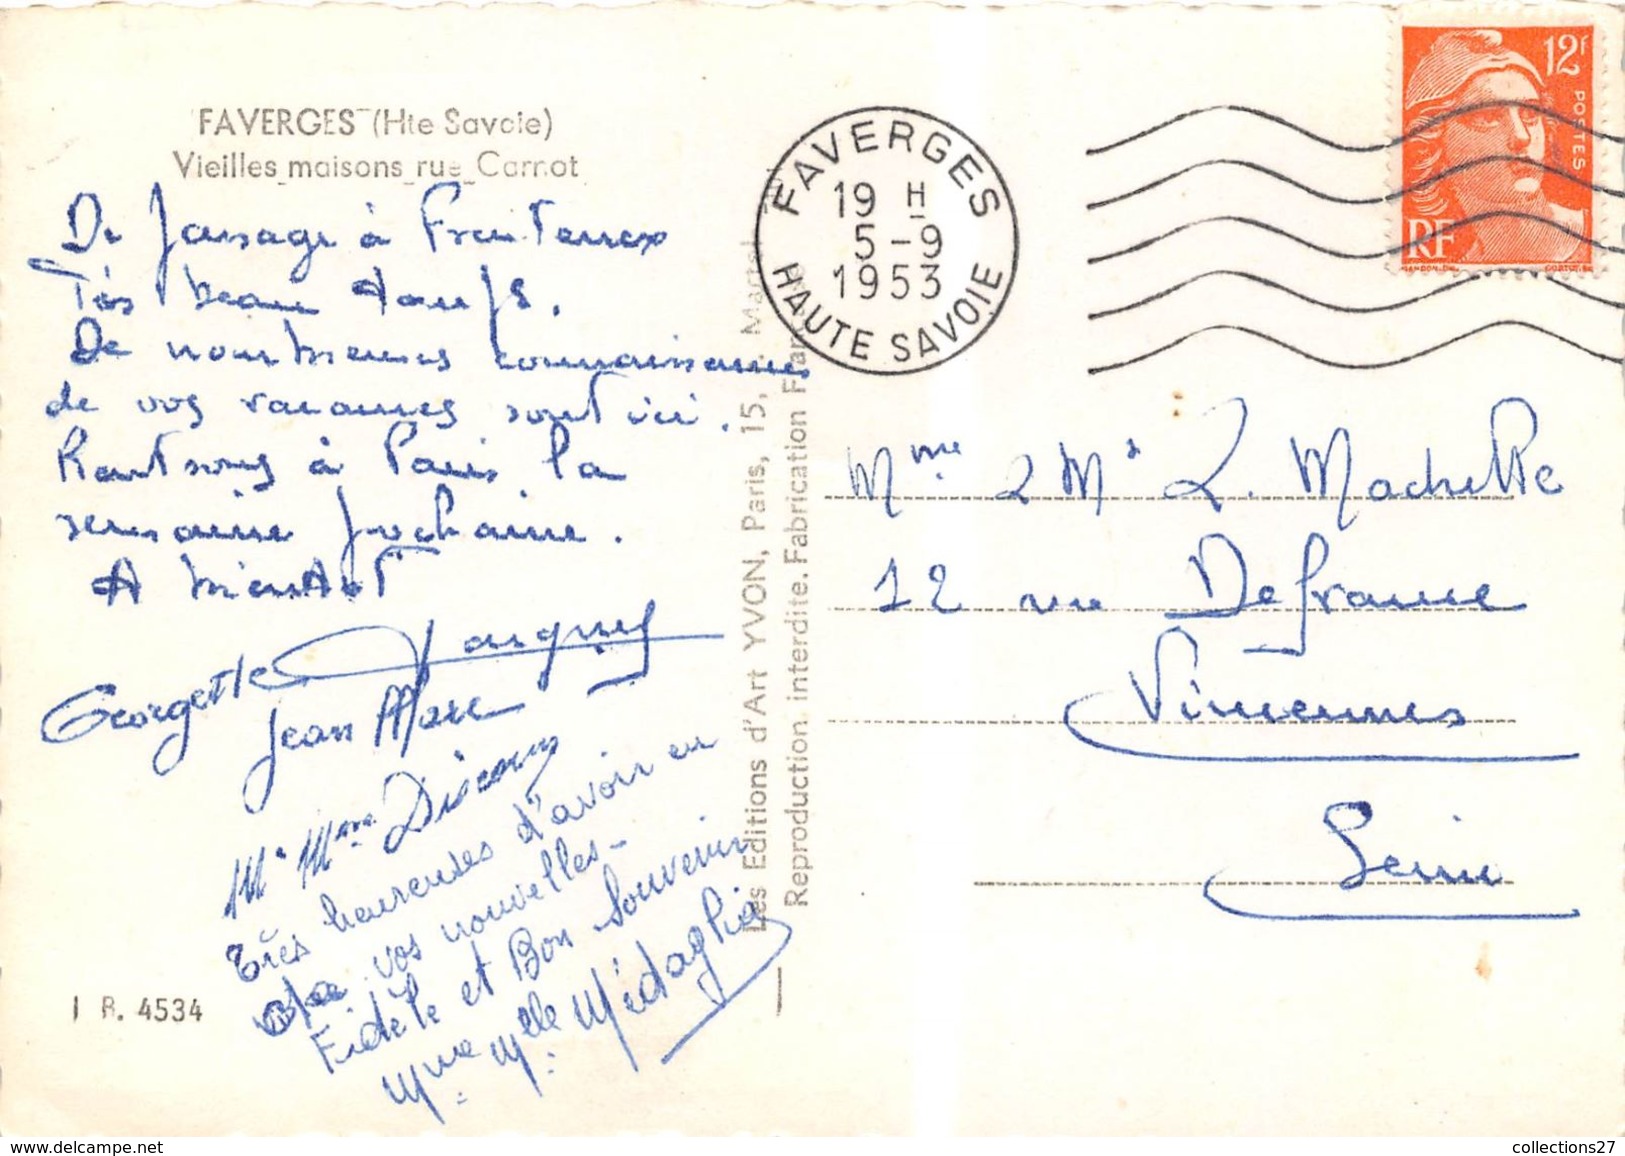 FAVERGES (Hte Savoie)
Vieilles maisons rue Carnot
De passage à Frontenex
Très beau temps.
De nombreuses connaissances
de vos vacances sont ici.
Rentrons à Paris la
semaine prochaine.
A bientôt
Georgette
Jean Marc
Mr Mme
très heureuses d'avoir eu
de vos nouvelles -
Fidèle et Bon Souvenir
Mme Mlle Médaglia
I R. 4534
Les Editions d'Art YVON, Paris, 15, R. Martel
Reproduction interdite. Fabrication Française
FAVERGES
19 H
5-9
1953
HAUTE SAVOIE
12F
POSTES
RF
GANDON
Mme & Mr L. Machette
12 rue Defrance
Vincennes
Seine
collections27